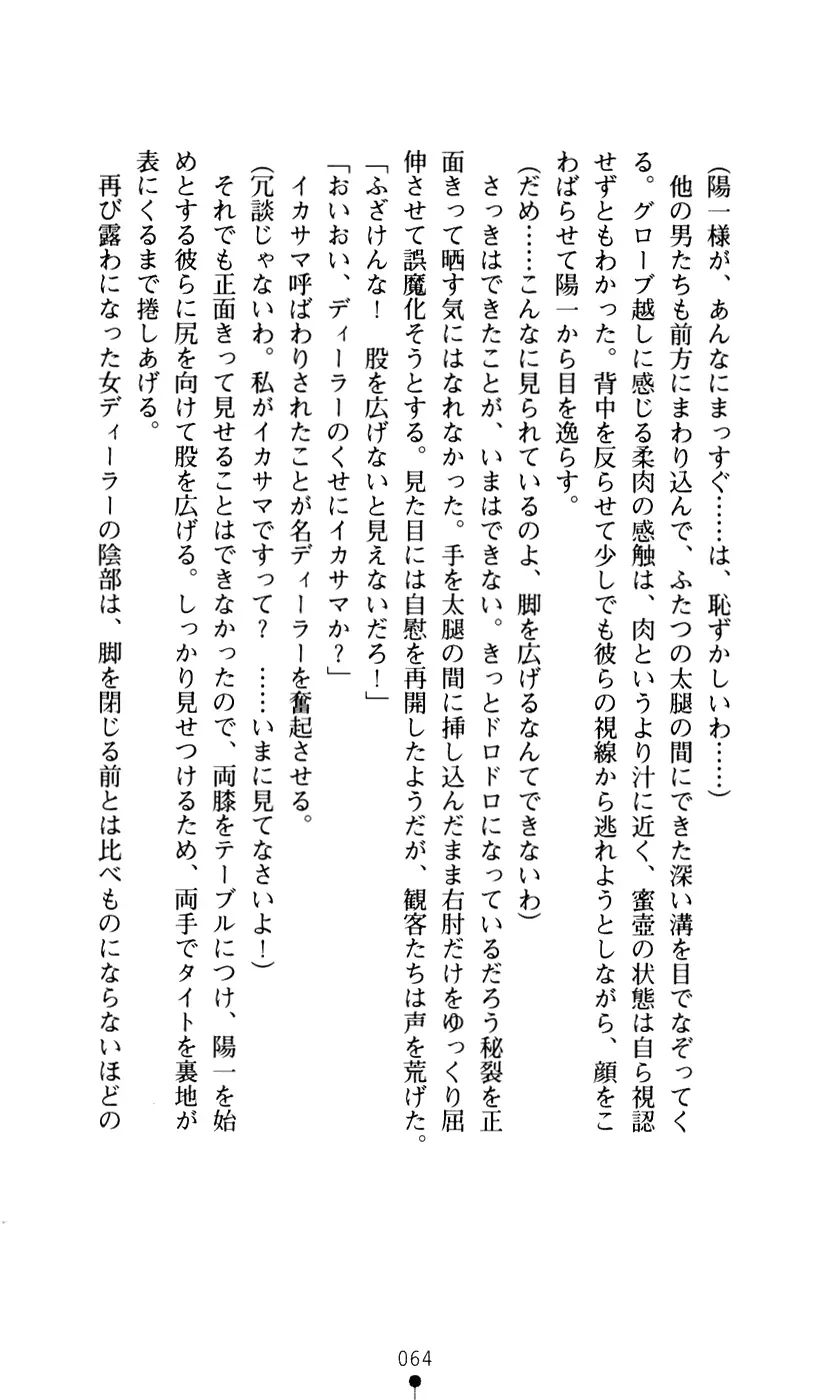 (陽一様が、あんなにまっすぐ……は、恥ずかしいわ……)
　他の男たちも前方にまわり込んで、ふたつの太腿の間にできた深い溝を目でなぞってく
る。グローブ越しに感じる柔肉の感触は、肉というより汁に近く、蜜壺の状態は自ら視認
せずともわかった。背中を反らせて少しでも彼らの視線から逃れようとしながら、顔をこ
わばらせて陽一から目を逸らす。
(だめ……こんなに見られているのよ、脚を広げるなんてできないわ)
　さっきはできたことが、いまはできない。きっとドロドロになっているだろう秘裂を正
面きって晒す気にはなれなかった。手を太腿の間に挿し込んだまま右肘だけをゆっくり屈
伸させて誤魔化そうとする。見た目には自慰を再開したようだが、観客たちは声を荒げた。
「ふざけんな！　股を広げないと見えないだろ！」
「おいおい、ディーラーのくせにイカサマか？」
　イカサマ呼ばわりされたことが名ディーラーを奮起させる。
(冗談じゃないわ。私がイカサマですって？　……いまに見てなさいよ！)
　それでも正面きって見せることはできなかったので、両膝をテーブルにつけ、陽一を始
めとする彼らに尻を向けて股を広げる。しっかり見せつけるため、両手でタイトを裏地が
表にくるまで捲しあげる。
　再び露わになった女ディーラーの陰部は、脚を閉じる前とは比べものにならないほどの
064